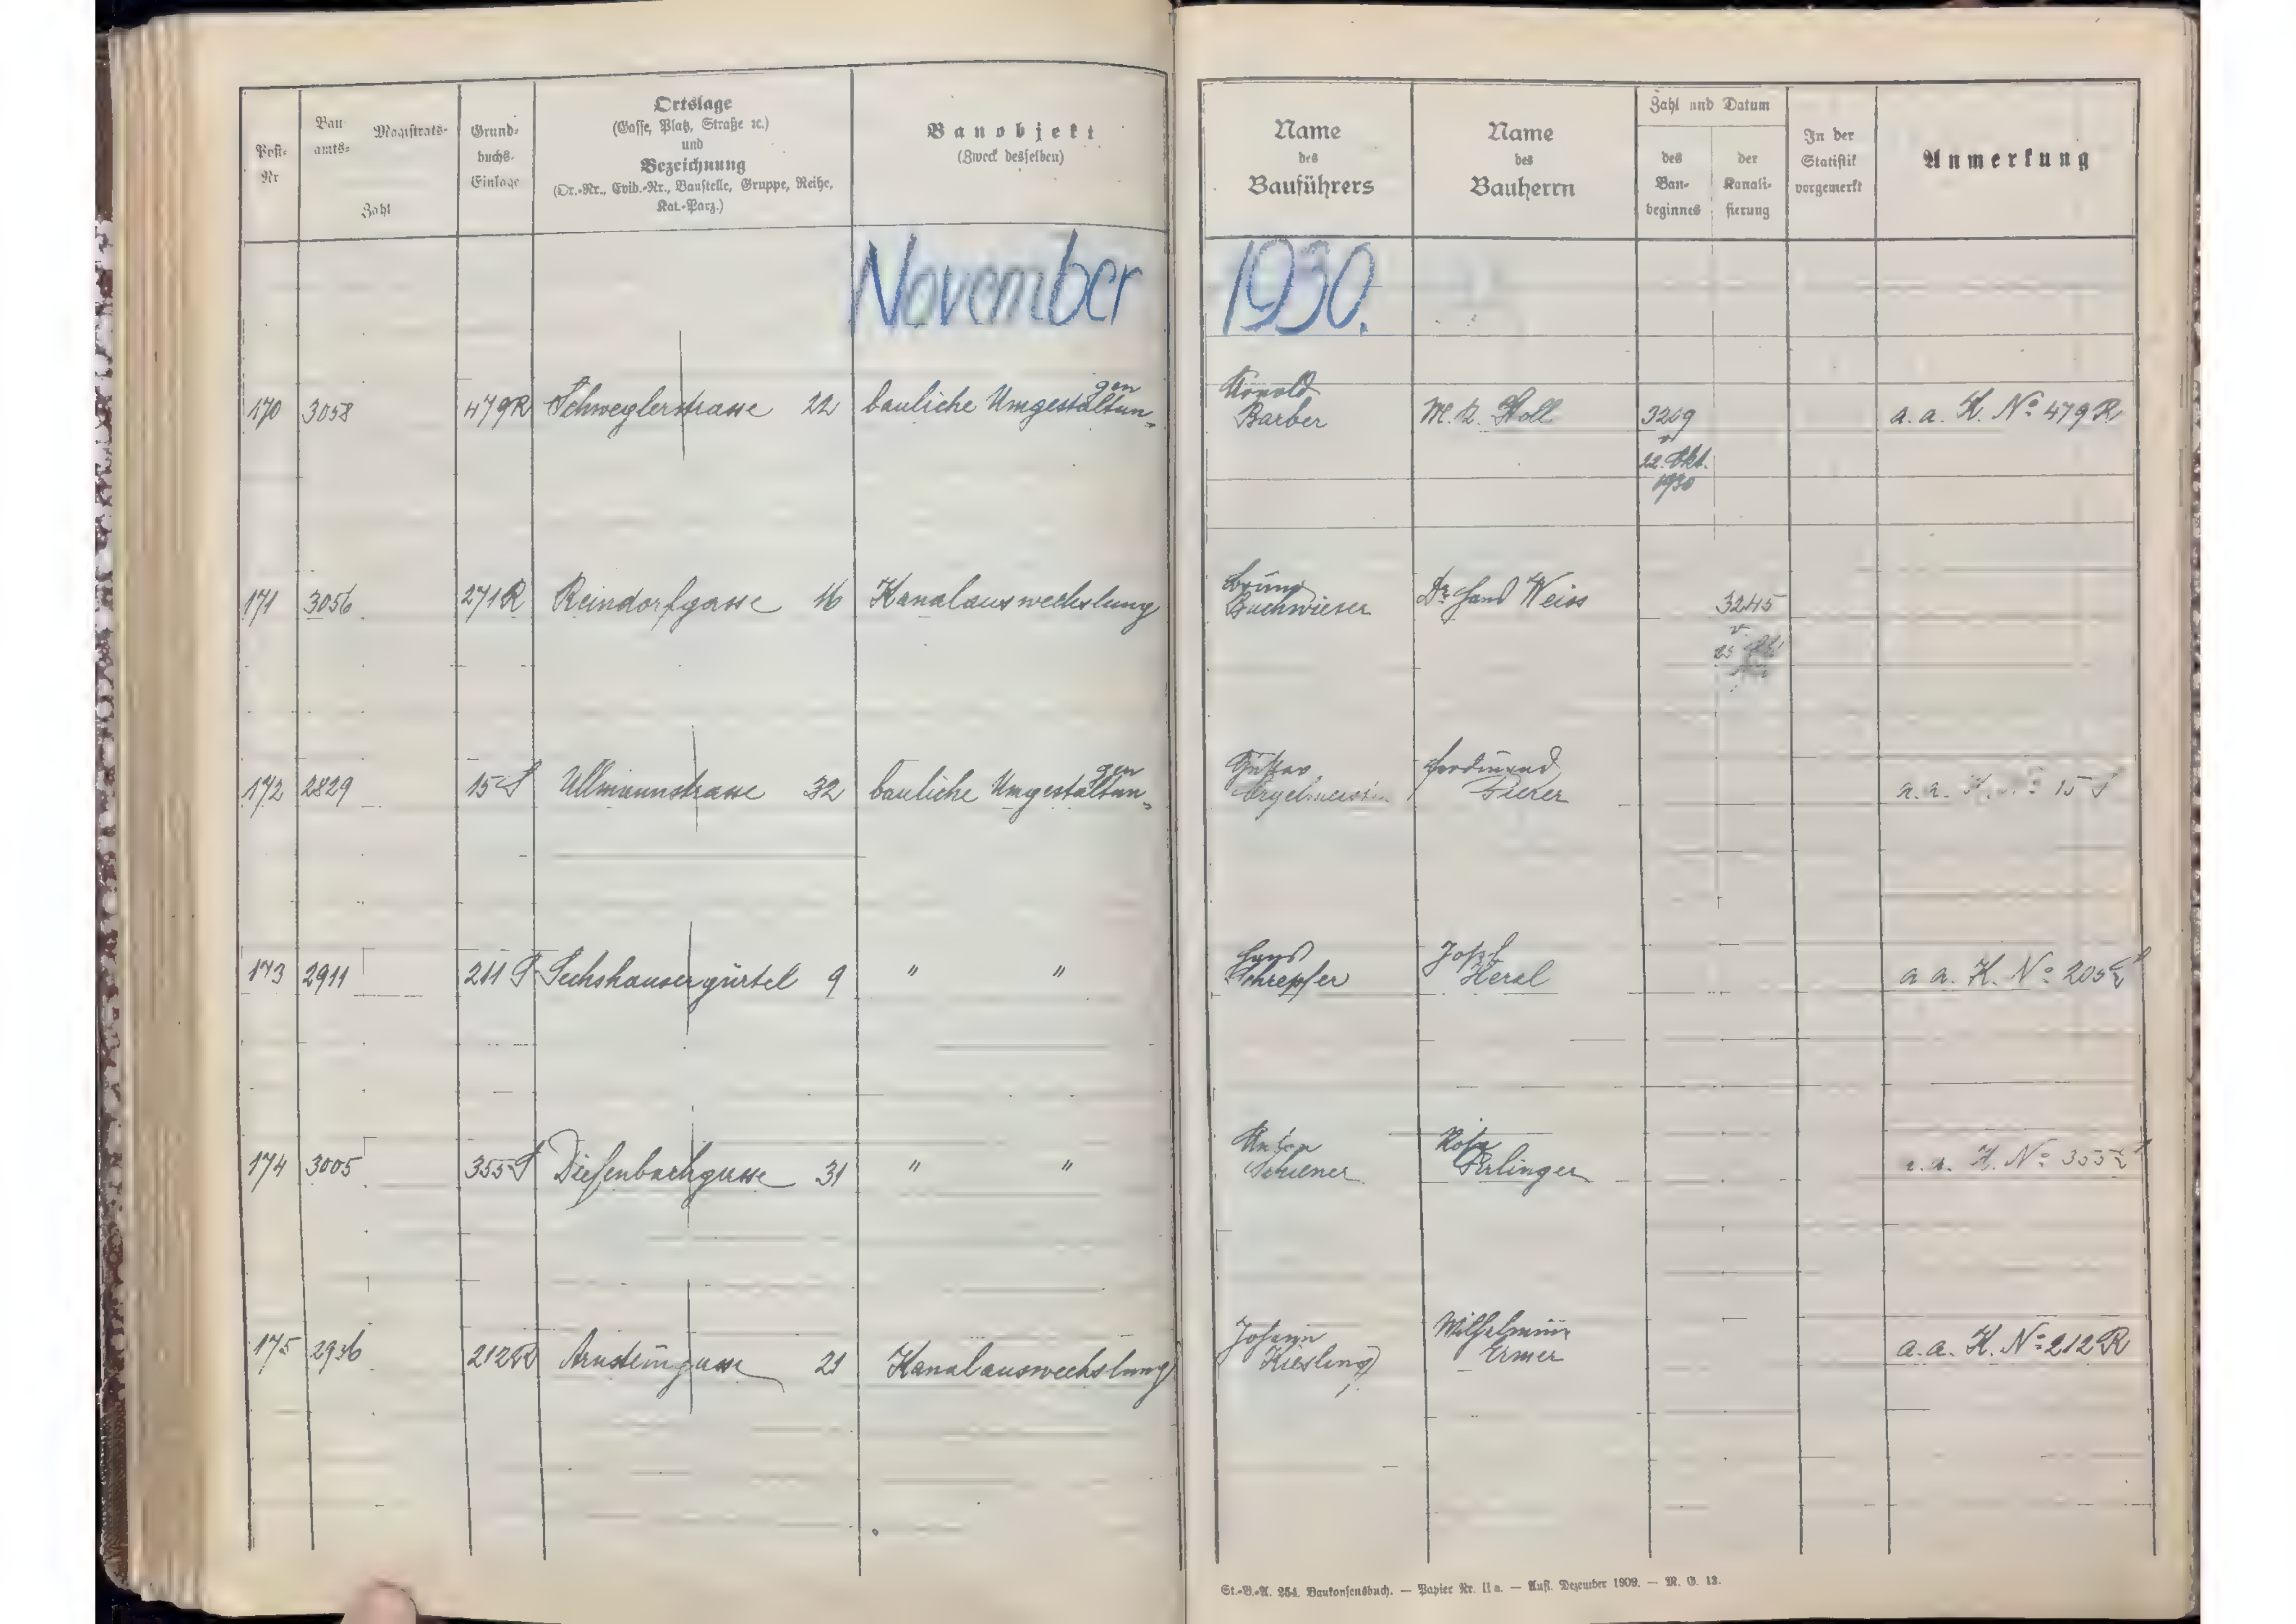 Post-Nr
Bau-amts- Magistrats-
Zahl
Grund-buchs-Einlage
Ortslage
(Gasse, Platz, Straße ꝛc.)
und
Bezeichnung
(Or.-Nr., Evid.-Nr., Baustelle, Gruppe, Reihe,
Kat.-Parz.)
Bauobjekt
(Zweck desselben)
Name
des
Bauführers
Name
des
Bauherrn
Zahl und Datum
des
Bau-
beginnes
der
Kanali-
sierung
In der
Statistik
vorgemerkt
Anmerkung
November 1930.
170 3058 479R Schweglerstrasse 22 bauliche Umgestaltun-
gen
Arnold
Barber
Stoll
3209
v
22. Okt.
1930
a. a. K. No 479 R
171 3056 271R Reindorfgasse 16 Kanalauswechslung
Bruno
Buchwieser
Dr. Hans Weiss
3245
v.
172 2829 15 S Ullmannstrasse 32 bauliche Umgestaltun-
gen
Gustav
Ferdinand
a. a. K. No 15 S
173 2911 211 S Sechshausergürtel 9 " "
Hans
Schrepfer
Josef
a a. K. No 205
174 3005 355 S Diefenbachgasse 31 " "
Anton
Rosa
K. No 355
175 212R Arnsteingasse 21 Kanalauswechslung
Johann
Kiesling
Wilhelmine
Ermer
a. a. K. No 212 R
St.-B.-A. 254. Baukonsensbuch. — Papier Nr. II a. — Aufl. Dezember 1909. — M. G. 12.